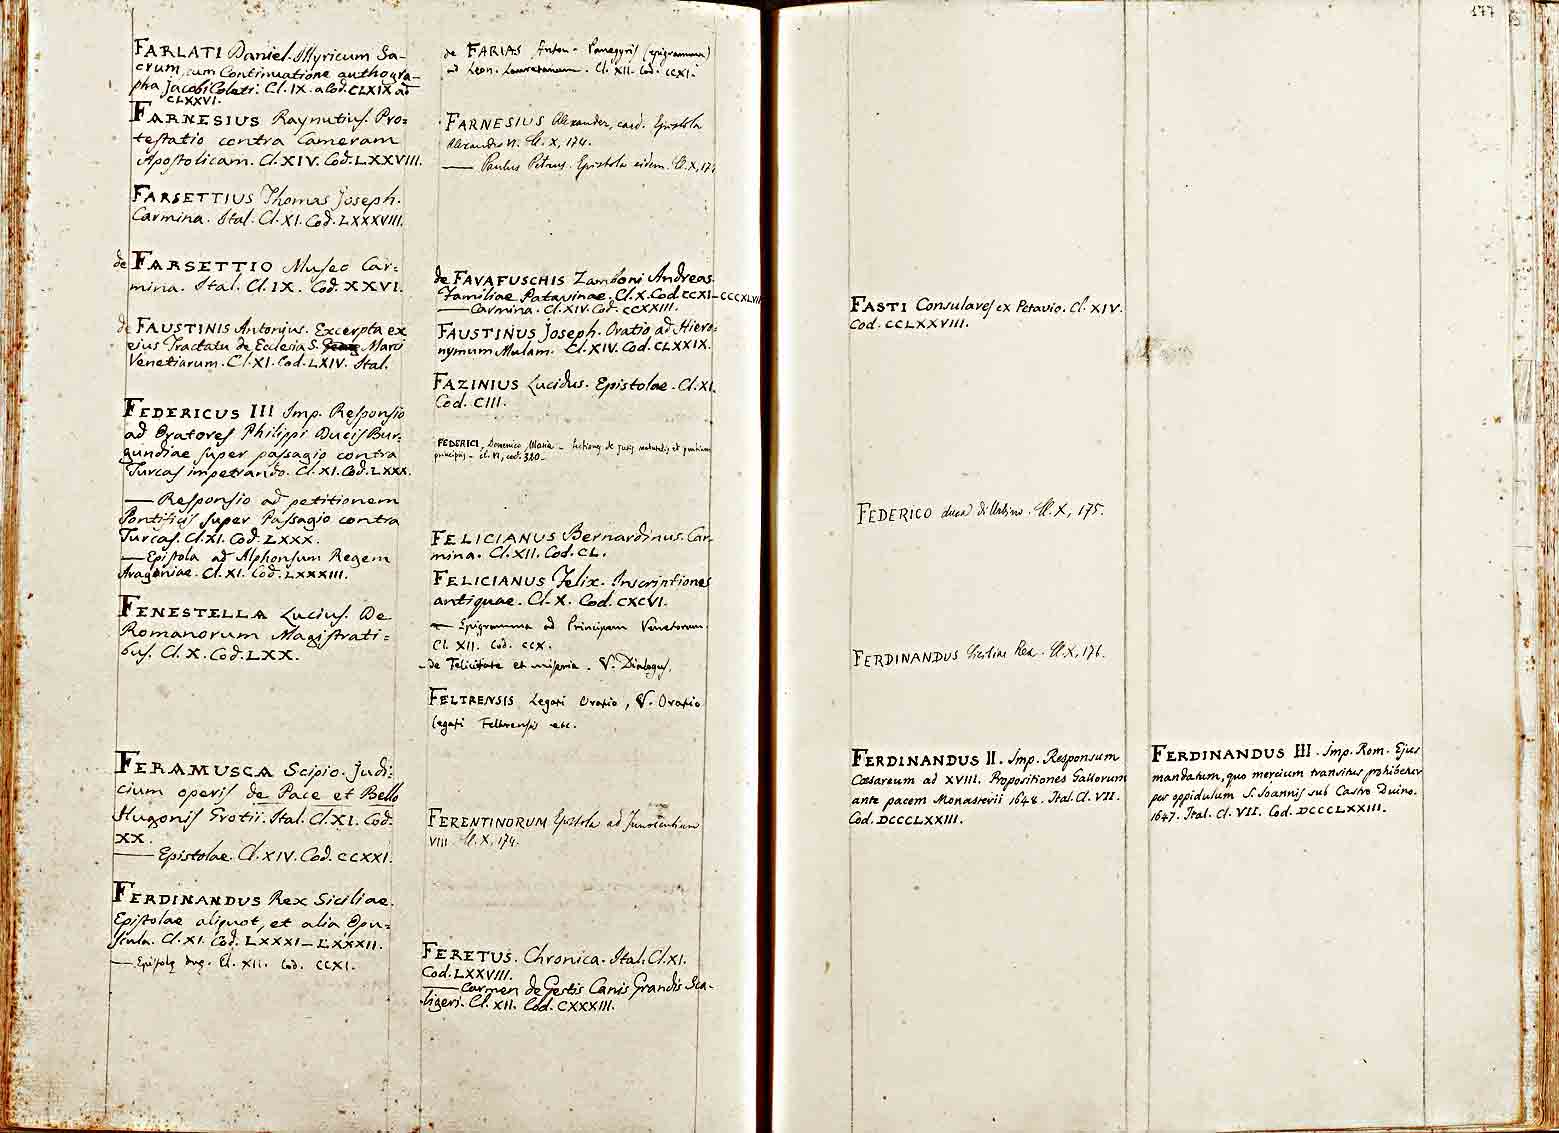 177
FARLATI Daniel. Illyricum Sa-
crum, cum Continuatione authogra-
pha Jacobi Coleti. Cl. IX. a Cod. CLXIX ad
CLXXVI.
FARNESIUS Raynutius. Pro=
testatio contra Cameram
Apostolicam. Cl. XIV. Cod. LXXVIII.
FARSETTIUS Thomas Joseph.
Carmina. Ital. Cl. XI. Cod. LXXXVIII.
de FARSETTIO Museo Car=
mina. Ital. Cl. IX. Cod. XXVI.
de FAUSTINIS Antonius. Excerpta ex
eius Tractatu de Ecclesia S. Marci
Venetiarum. Cl. XI. Cod. LXIV. Ital.
FEDERICUS III Imp. Responsio
ad Oratores Philippi Ducis Bur-
gundiae super passagio contra
Turcas impetrando. Cl. XI. Cod. LXXX.
— Responsio ad petitionem
Pontificis super Passagio contra
Turcas. Cl. XI. Cod. LXXX.
— Epistola ad Alphonsum Regem
Aragoniae. Cl. XI. Cod. LXXXIII.
FENESTELLA Lucius. De
Romanorum Magistrati=
bus. Cl. X. Cod. LXX.
FERAMUSCA Scipio. Judi=
cium operis de Pace et Bello
Hugonis Grotii. Ital. Cl. XI. Cod.
XX.
— Epistolae. Cl. XIV. Cod. CCXXI.
FERDINANDUS Rex Siciliae.
Epistolae aliquot, et alia Opu=
scula. Cl. XI. Cod. LXXXI—LXXXII.
— Epistolę Cl. XII. Cod. CCXI.
de FARIAS Anton. Panegyris (epigramma)
ad Leon. Lauretanum. Cl. XII. Cod. CCXI.
FARNESIUS Alexander, card. Epistola
Alexandro VI. Cl. X, 174.
— Paulus Petrus. Epistola eidem. Cl. X, 174
de FAVAFUSCHIS Zamboni Andreas.
Familiae Patavinae. Cl. X. Cod. CCXI—CCCXLVII
— Carmina. Cl. XIV. Cod. CCXXIII.
FAUSTINUS Joseph. Oratio ad Hiero-
nymum Mulam. Cl. XIV. Cod. CLXXIX.
FAZINIUS Lucidus. Epistolae. Cl. XI.
Cod. CIII.
FEDERICI, Domenico Maria - Lectiones de juris naturalis et gentium
principiis - cl. VI, cod. 320 -
FELICIANUS Bernardinus. Car-
mina. Cl. XII. Cod. CL.
FELICIANUS Felix. Inscriptiones
antiquae. Cl. X. Cod. CXCVI.
— Epigramma ad Principem Venetorum.
Cl. XII. Cod. CCX.
- de Felicitate et miseria. V. Dialogus.
FELTRENSIS Legati Oratio, V. Oratio
legati Feltrensis etc.
FERENTINORUM Epistola ad Innocentium
VIII. Cl. X, 174.
FERETUS. Chronica. Ital. Cl. XI.
Cod. LXXVIII.
— Carmen de Gestis Canis Grandis Sca-
ligeri. Cl. XII. Cod. CXXXIII.
FASTI Consulares ex Petavio. Cl. XIV.
Cod. CCLXXVIII.
FEDERICO duca di Urbino. Cl. X, 175.
FERDINANDUS Siciliae Rex. Cl. X, 176.
FERDINANDUS II. Imp. Responsum
Caesareum ad XVIII. Propositiones Gallorum
ante pacem Monasterii 1648. Ital. Cl. VII.
Cod. DCCCLXXIII.
FERDINANDUS III. Imp. Rom. Ejus
mandatum, quo mercium transitus prohibetur
per oppidulum S. Joannis sub Castro Duino.
1647. Ital. Cl. VII. Cod. DCCCLXXIII.